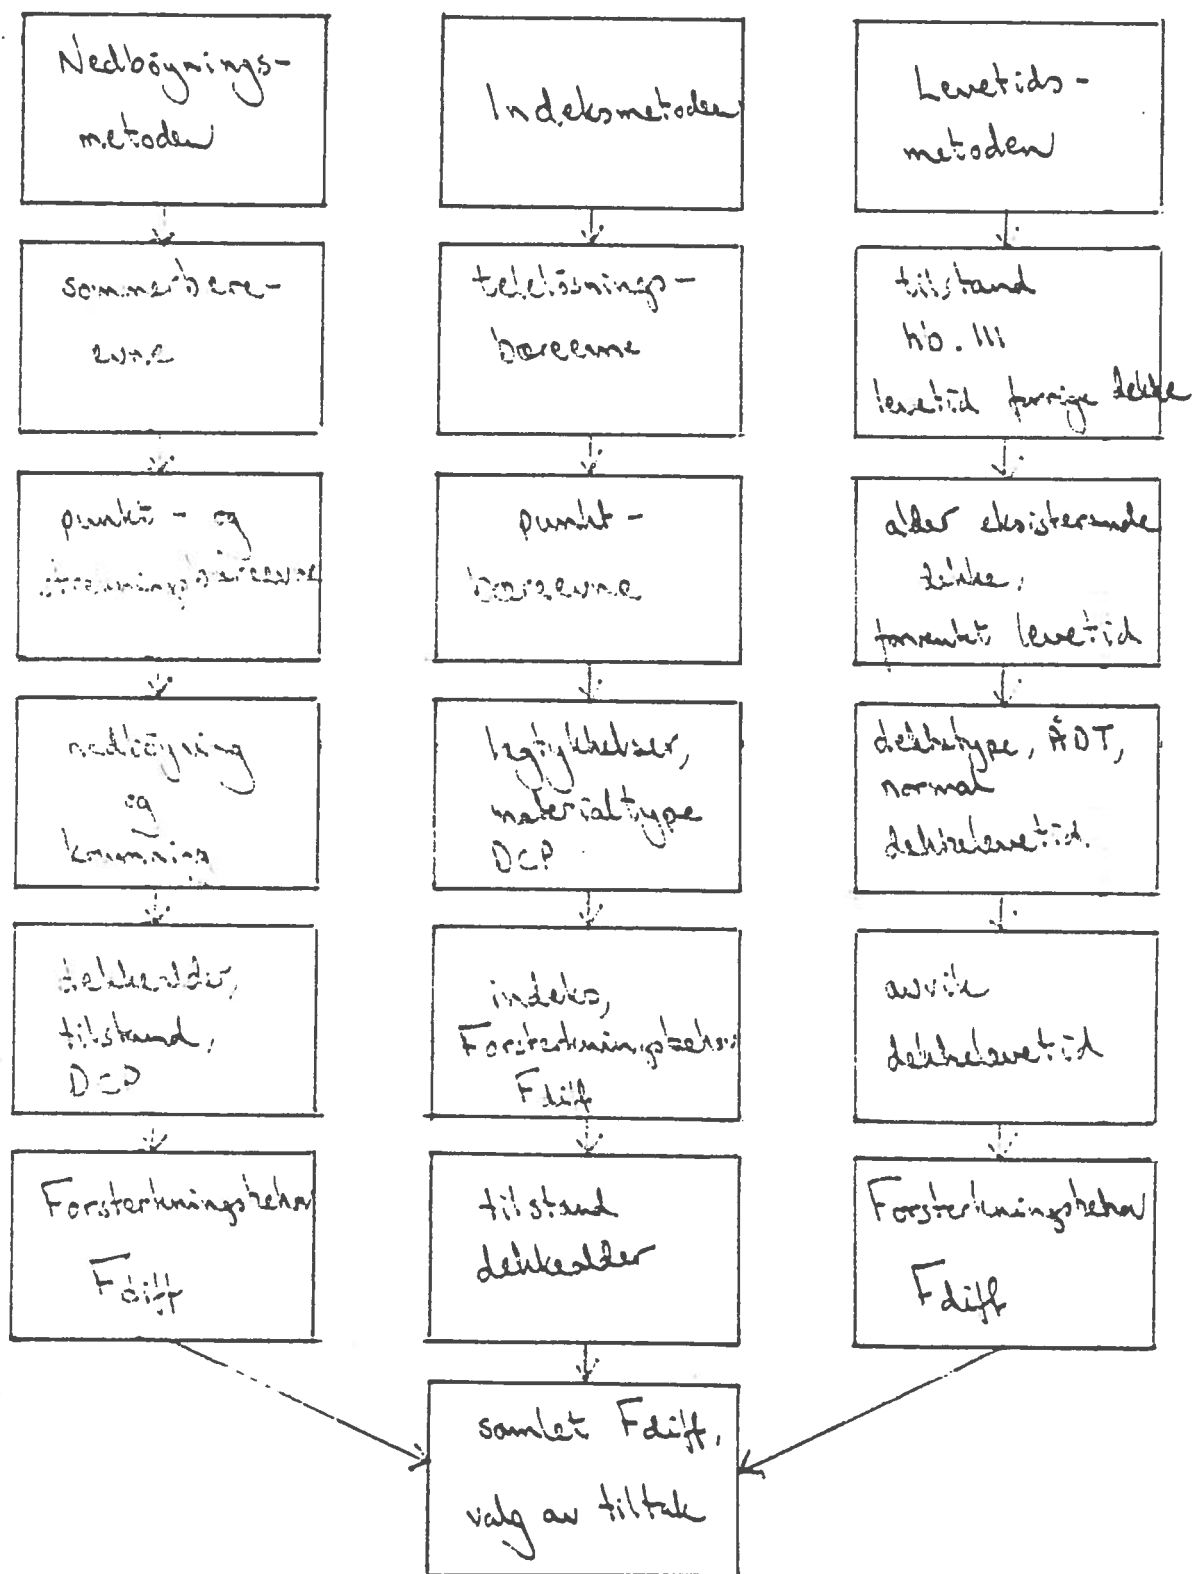 Nedböynings-
metoden
sommerbære-
evne
punkt- og
streknings bæreevne
nedböyning
og
krumning
dekkealder,
tilstand,
DCP
Forsterkningsbehov
Fdiff
Indeksmetoden
telelösnings-
bæreevne
punkt-
bæreevne
lagtykkelser,
materialtype
DCP
indeks,
Forsterkningsbehov
Fdiff
tilstand
dekkealder
Levetids-
metoden
tilstand
hb. 111
levetid forrige dekke
alder eksisterende
dekke,
forventet levetid
dekketype, ÅDT,
normal
dekkelevetid.
avvik
dekkelevetid
Forsterkningsbehov
Fdiff
samlet Fdiff,
valg av tiltak